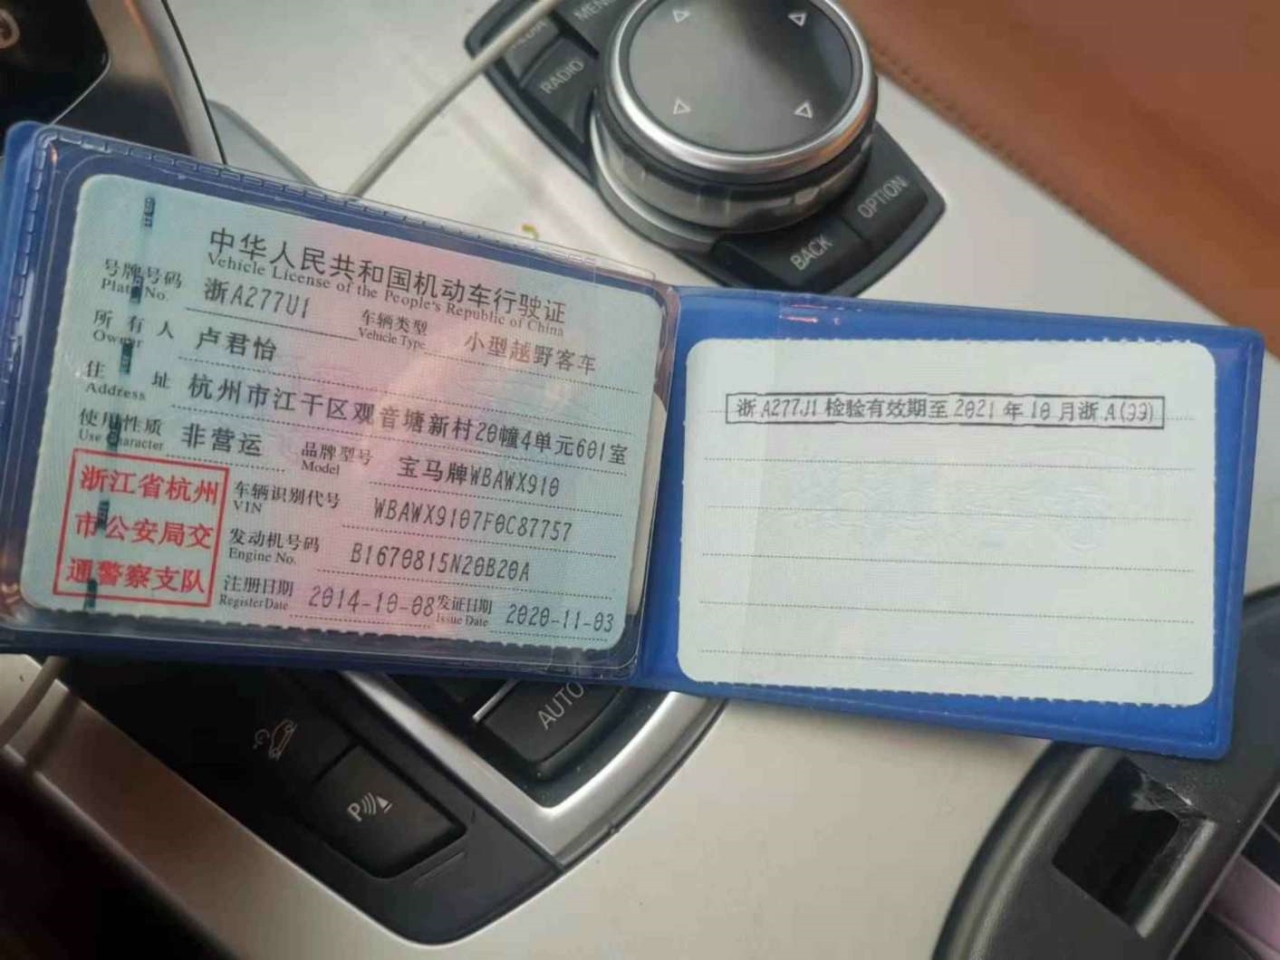 MENU
RADIO
OPTION
BACK
中华人民共和国机动车行驶证
Vehicle License of the People's Republic of China
号牌号码 浙A277U1 车辆类型 小型越野客车
Plate No. Vehicle Type
所有人 卢君怡
Owner
住址 杭州市江干区观音塘新村20幢4单元601室
Address
使用性质 非营运 品牌型号 宝马牌WBAWX910
Use Character Model
浙江省杭州
市公安局交
通警察支队
车辆识别代号 WBAWX9107F0C87757
VIN
发动机号码 B1670815N20B20A
Engine No.
注册日期 2014-10-08 发证日期 2020-11-03
Register Date Issue Date
检验有效期至2021年10月浙A(99)
AUTO
P